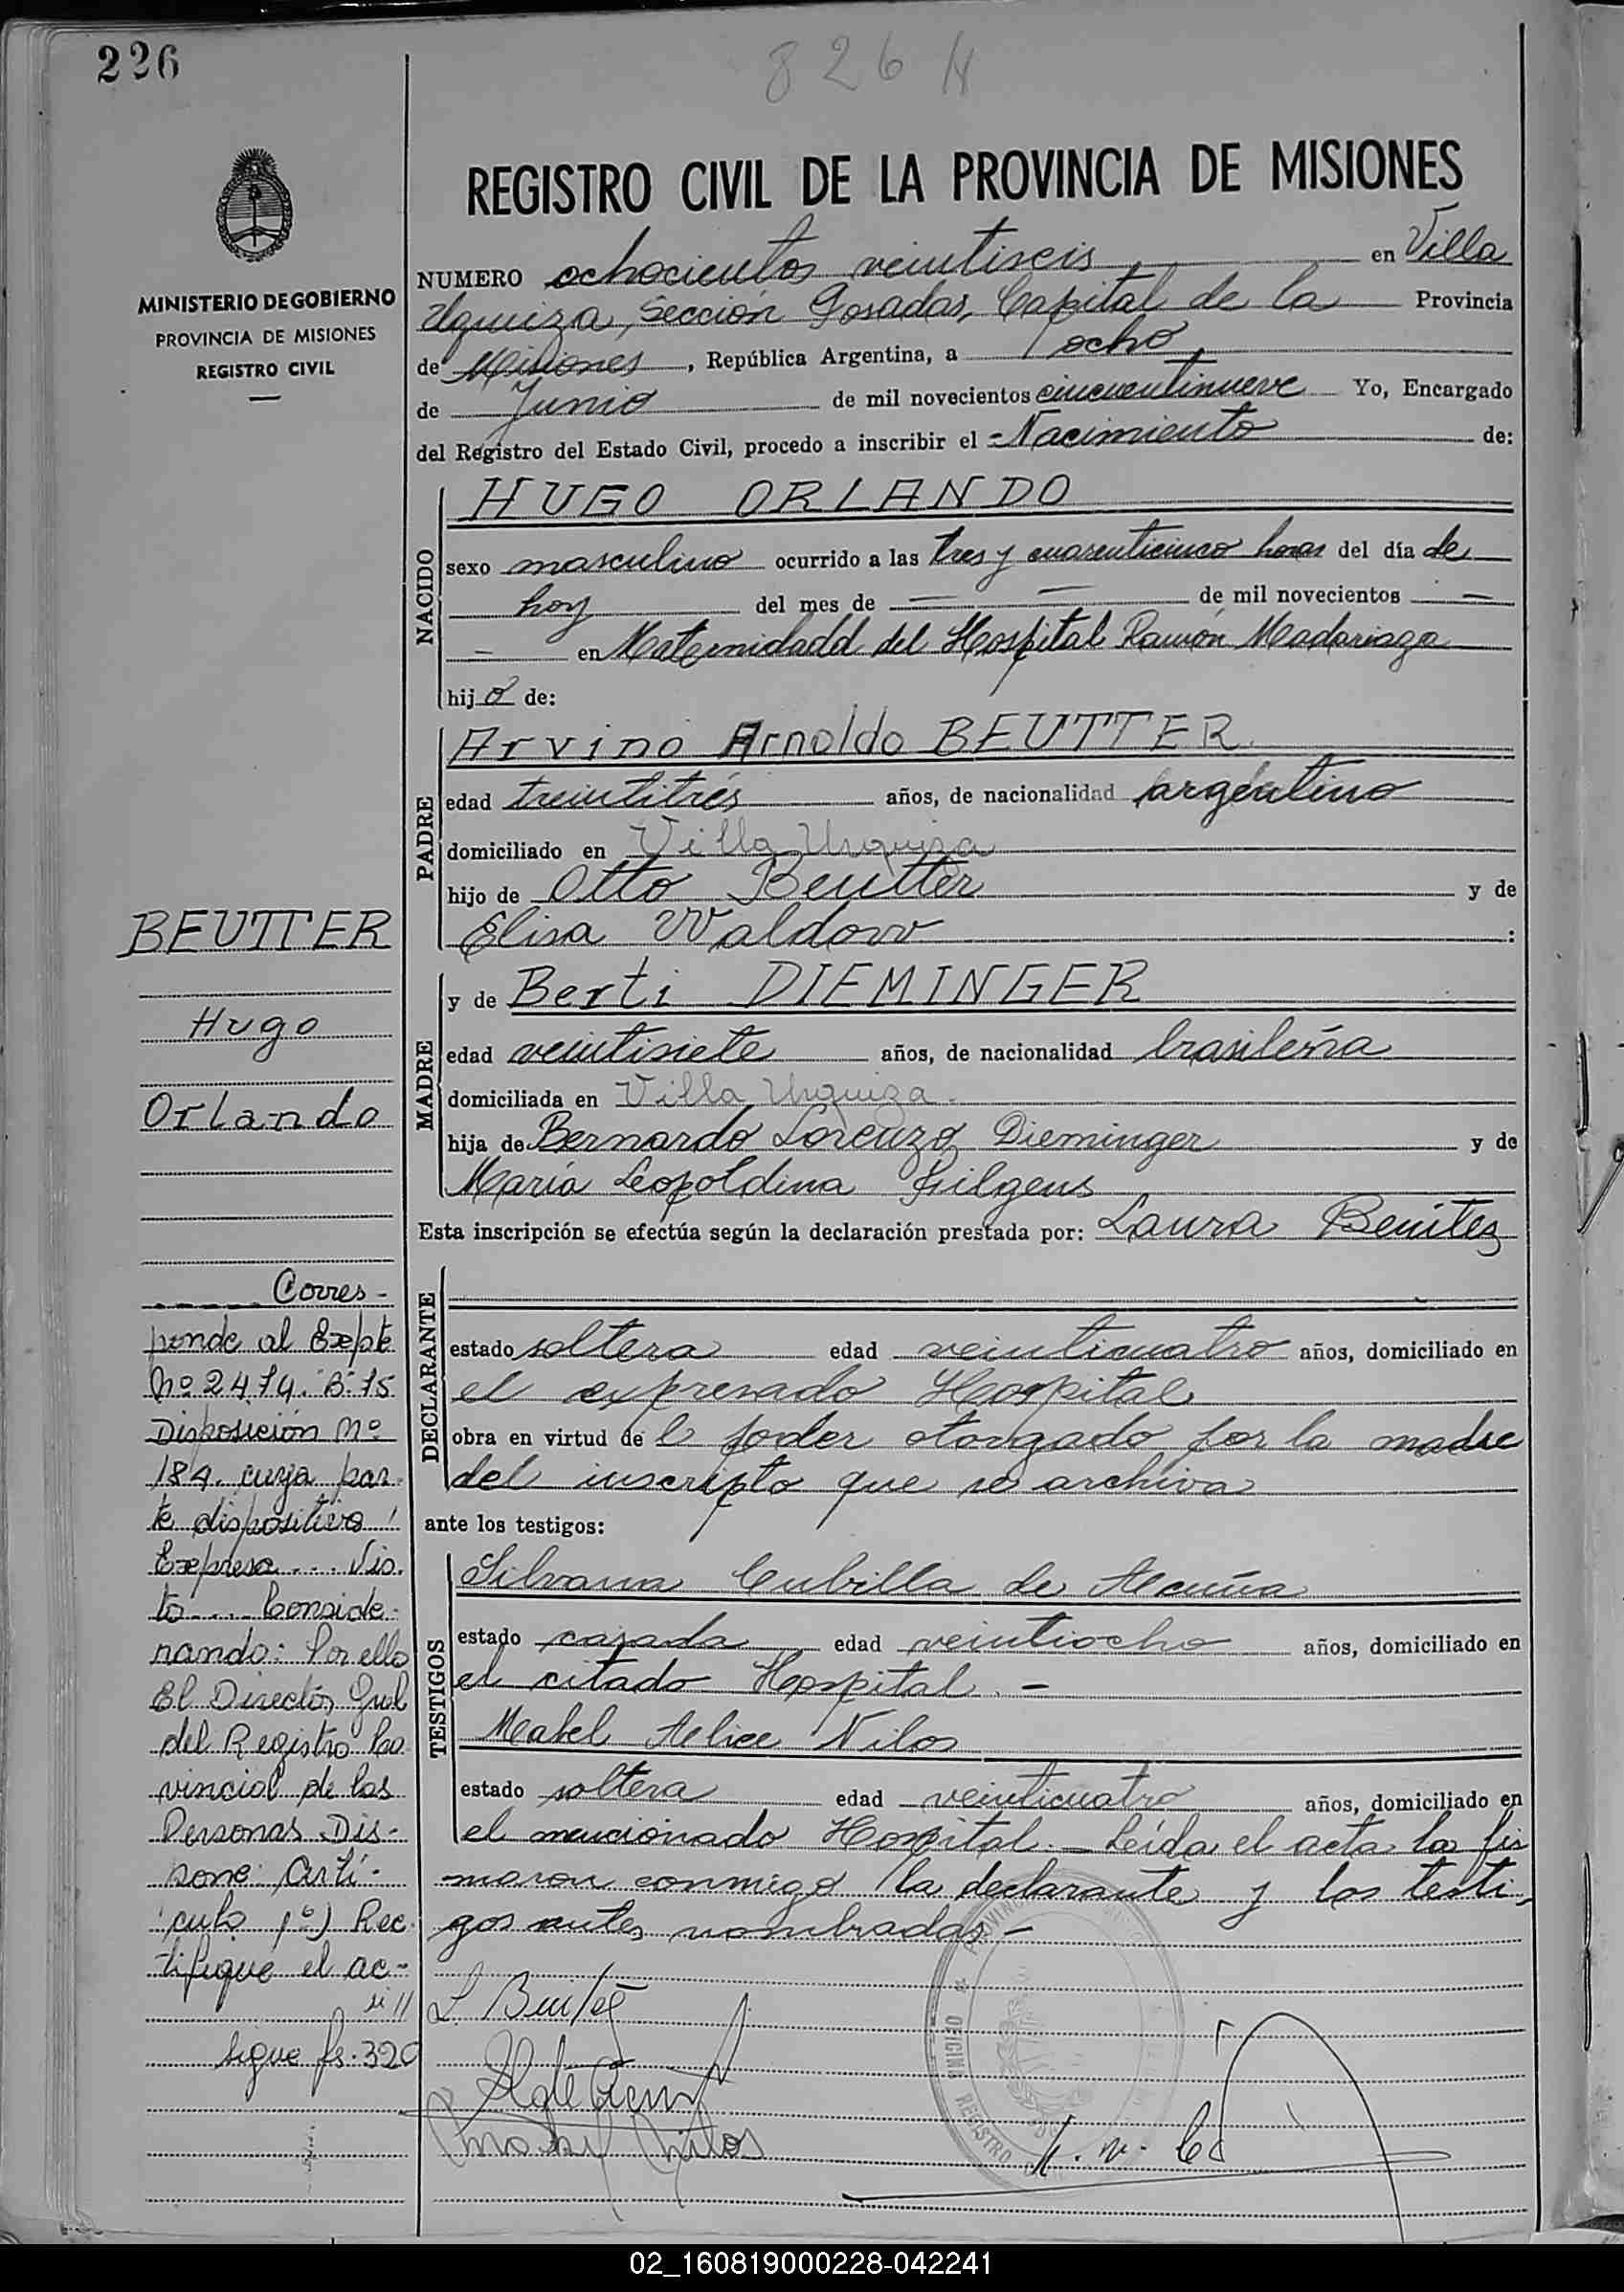 226
826 N
REGISTRO CIVIL DE LA PROVINCIA DE MISIONES
MINISTERIO DE GOBIERNO
PROVINCIA DE MISIONES
REGISTRO CIVIL
NUMERO ochocientos veintiseis en Villa
Urquiza, Sección Posadas, Capital de la Provincia
de Misiones, República Argentina, a ocho
de Junio de mil novecientos cincuentinueve Yo, Encargado
del Registro del Estado Civil, procedo a inscribir el Nacimiento de:
NACIDO
HUGO ORLANDO
sexo masculino ocurrido a las tres y cuarenticinco horas del día de
hoy del mes de — — de mil novecientos —
— en Maternidadd del Hospital Ramón Madariaga
hijo de:
PADRE
Arvino Arnoldo BEUTTER
edad treintitrés años, de nacionalidad argentino
domiciliado en Villa Urquiza
hijo de Otto Beutter y de
Elisa Waldow :
MADRE
y de Berti DIEMINGER
edad veintisiete años, de nacionalidad brasileña
domiciliada en Villa Urquiza.
hija de Bernardo Lorenzo Dieminger y de
María Leopoldina Hilgens
Esta inscripción se efectúa según la declaración prestada por: Laura Benítez
DECLARANTE
estado soltera edad veinticuatro años, domiciliado en
el expresado Hospital
obra en virtud de l poder otorgado por la madre
del inscripto que se archiva
ante los testigos:
TESTIGOS
Silvana Cubilla de Acuña
estado casada edad veintiocho años, domiciliado en
el citado Hospital. —
Mabel Alice Nilos
estado soltera edad veinticuatro años, domiciliado en
el mencionado Hospital. — Leída el acta la fir
maron conmigo la declarante y los testi-
gos antes nombradas —
L. Benítez
BEUTTER
Hugo
Orlando
Corres-
ponde al Expte
Nº 2474. B. 75
Disposición Nº
184. cuya par-
te dispositiva
Expresa.... Vis-
to.... Conside-
rando: Por ello
El Director Gral
del Registro Pro
vincial de las
Personas Dis-
pone: Artí-
culo 1º) Rec-
tifique el ac-
sigue fs. 320
OFICINA REGISTRO
02_160819000228-042241